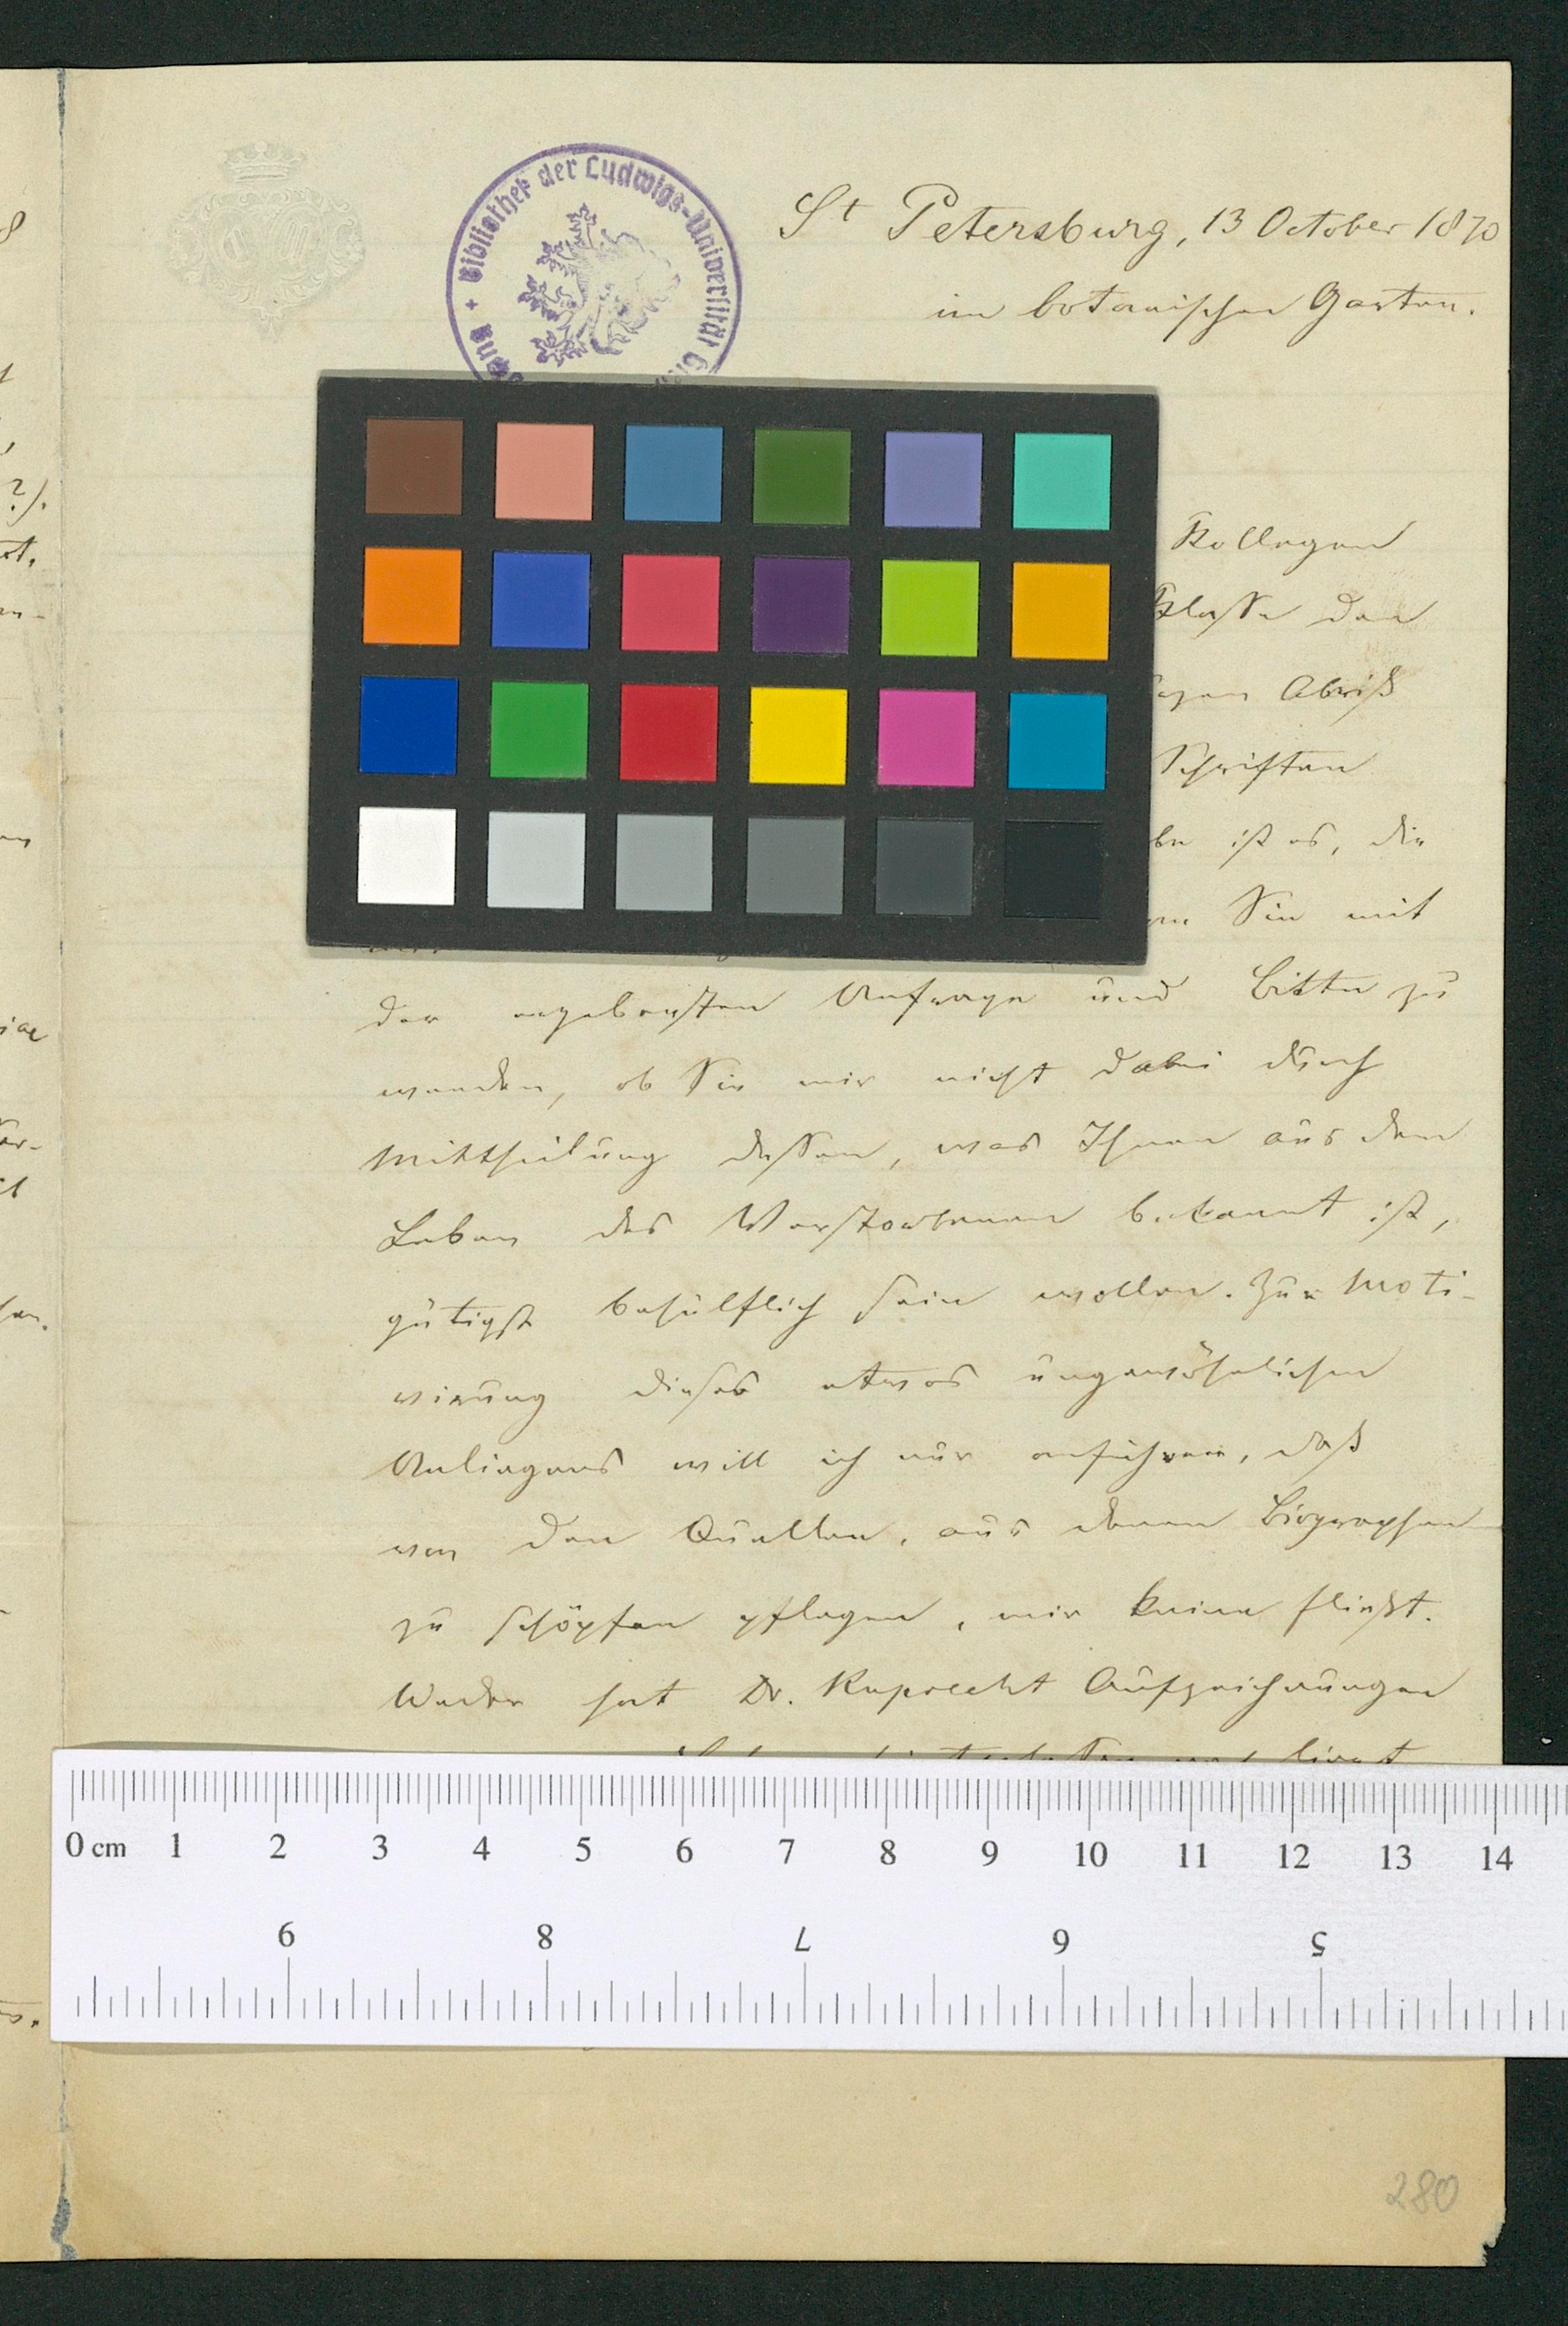 Bibliothek der Ludwigs-Universität
St Petersburg, 13 October 1870
im botanischen Garten.
Kollegen
Klasse den
Abriß
Schriften
ist es, die
Sie mit
der ergebensten Anfrage und Bitte zu
wenden, ob Sie mir nicht dabei durch
Mittheilung dessen, was Ihnen aus dem
Leben des Verstorbenen bekannt ist,
gütigst behülflich sein wollen. Zur Moti-
virung dieses etwas ungewöhnlichen
Anliegens will ich nur anführen, daß
von den Quellen, aus denen Biographen
zu schöpfen pflegen, mir keine fließt.
Weder hat Dr. Ruprecht Aufzeichnungen
0 cm 1 2 3 4 5 6 7 8 9 10 11 12 13 14
9 8 7 6 5
280